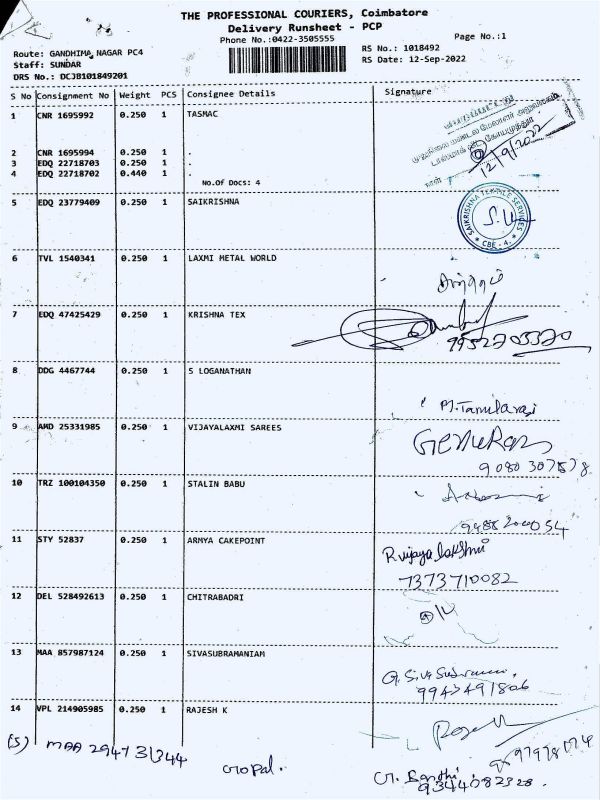 THE PROFESSIONAL COURIERS, Coimbatore
Delivery Runsheet - PCP
Phone No.:0422-3505555
Page No.:1
Route: GANDHIMA NAGAR PC4
Staff: SUNDAR
DRS No.: DCJB101849201
RS No.: 1018492
RS Date: 12-Sep-2022
S No Consignment No Weight PCS Consignee Details Signature
1 CNR 1695992 0.250 1 TASMAC
2 CNR 1695994 0.250 1 .
3 EDQ 22718703 0.250 1 .
4 EDQ 22718702 0.440 1 .
No.Of Docs: 4
12/9/2022
5 EDQ 23779409 0.250 1 SAIKRISHNA
SAIKRISHNA TEXTILE SERVICES
* CBE - 4. *
6 TVL 1540341 0.250 1 LAXMI METAL WORLD
7 EDQ 47425429 0.250 1 KRISHNA TEX
8 DDG 4467744 0.250 1 S LOGANATHAN
M.Tamilarasi
9 AMD 25331985 0.250 1 VIJAYALAXMI SAREES
10 TRZ 100104350 0.250 1 STALIN BABU
11 STY 52837 0.250 1 ARMYA CAKEPOINT
R vijaya lakshmi
7373710082
12 DEL 528492613 0.250 1 CHITRABADRI
13 MAA 857987124 0.250 1 SIVASUBRAMANIAM
14 VPL 214905985 0.250 1 RAJESH K
(S) MAA 294731344
Gopal.
9344082328